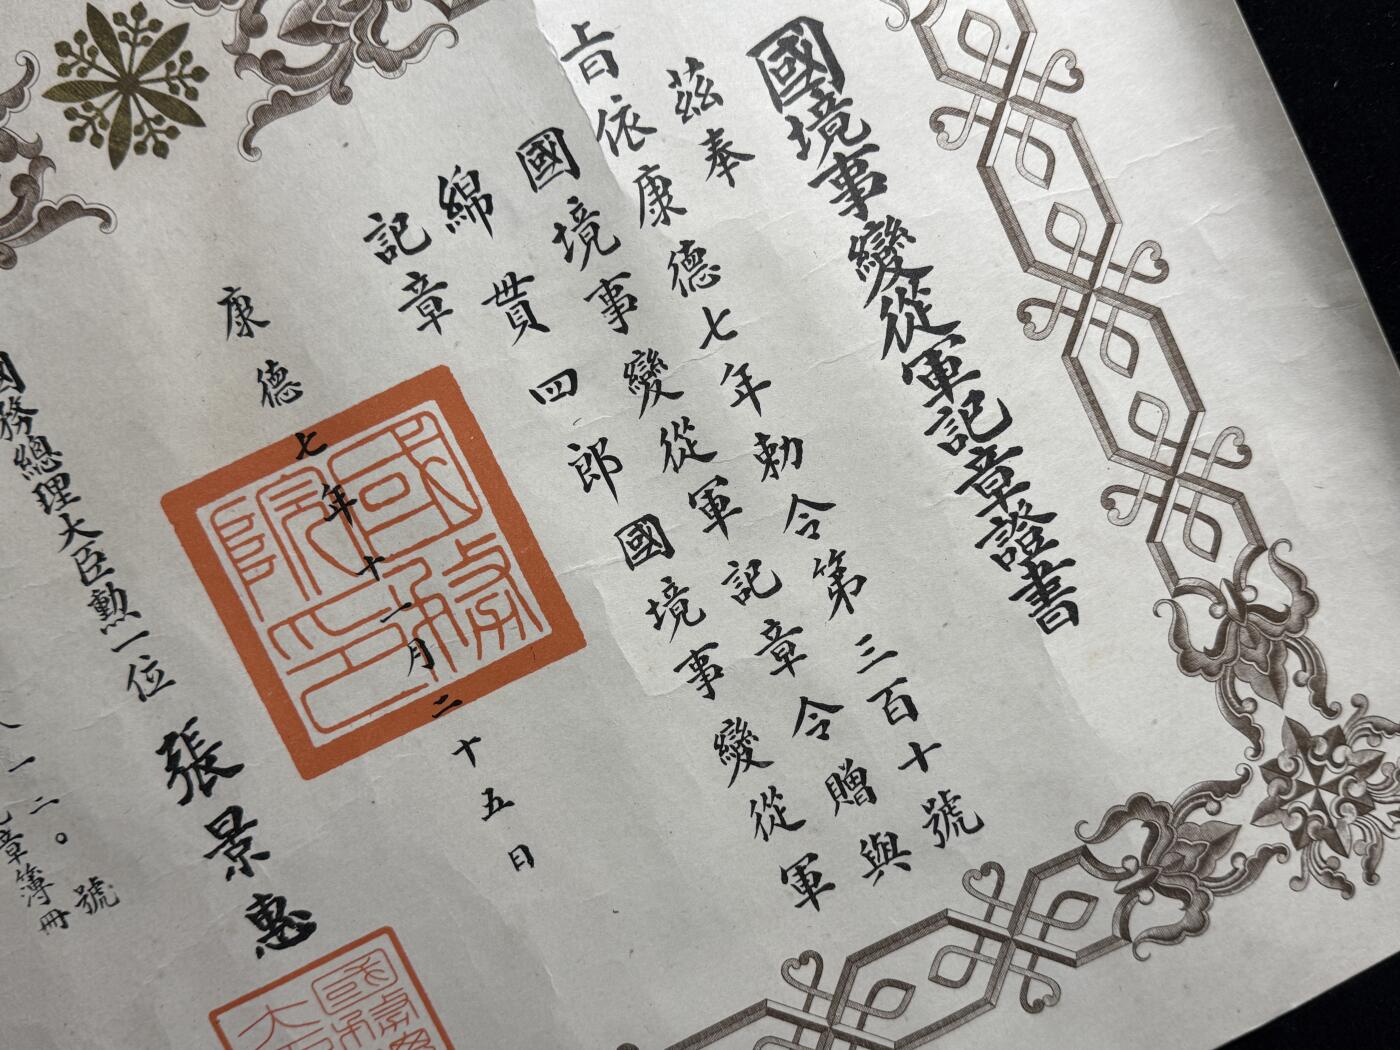 國境事變從軍記章證書
茲奉
旨依康德七年勅令第三百十號
國境事變從軍記章令贈與
綿貫四郎國境事變從軍
記章
康德七年十一月二十五日
國務院印
國務總理大臣勳一位張景惠
一二〇號
章簿冊